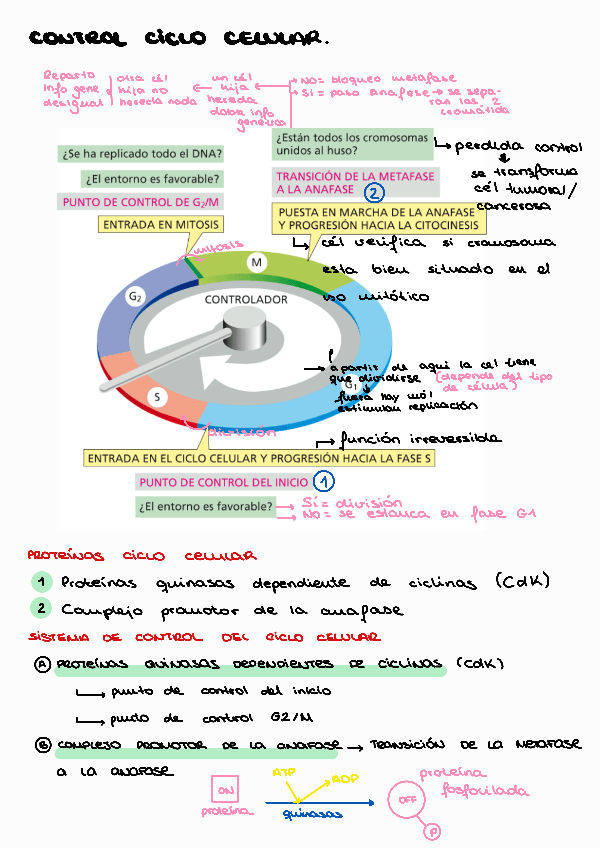 CONTROL CICLO CELULAR.
Reparto
info gene
desigual
otra cél
hija no
hereda nada
un cél
hija
hereda
doble info
genética
No= bloqueo metafase
Sí = paso Anafase → se sepa-
ran las 2
cromátida
¿Se ha replicado todo el DNA?
¿El entorno es favorable?
PUNTO DE CONTROL DE G2/M
ENTRADA EN MITOSIS
¿Están todos los cromosomas
unidos al huso?
TRANSICIÓN DE LA METAFASE
A LA ANAFASE 2
PUESTA EN MARCHA DE LA ANAFASE
Y PROGRESIÓN HACIA LA CITOCINESIS
perdida control
se transforma
cél tumoral/
cancerosa
cél verifica si cromosoma
esta bien situado en el
uso mitótico
mitosis
M
G2
CONTROLADOR
S
G1
→ apartir de aqui la cel tiene
que dividirse (depende del tipo
de célula)
fuera hay mol
estimulan replicación
división
función irreversible
ENTRADA EN EL CICLO CELULAR Y PROGRESIÓN HACIA LA FASE S
PUNTO DE CONTROL DEL INICIO 1
¿El entorno es favorable?
→ Sí = división
→ No = se estanca en fase G1
PROTEÍNAS CICLO CELULAR
1 Proteínas quinasas dependiente de ciclinas (CdK)
2 Complejo promotor de la anafase
SISTEMA DE CONTROL DEL CICLO CELULAR
A PROTEÍNAS QUINASAS DEPENDIENTES DE CICLINAS (CdK)
punto de control del inicio
punto de control G2/M
B COMPLEJO PROMOTOR DE LA ANAFASE → TRANSICIÓN DE LA METAFASE
A LA ANAFASE
ON
proteína
ATP
ADP
quinasas
OFF
P
proteína
fosforilada